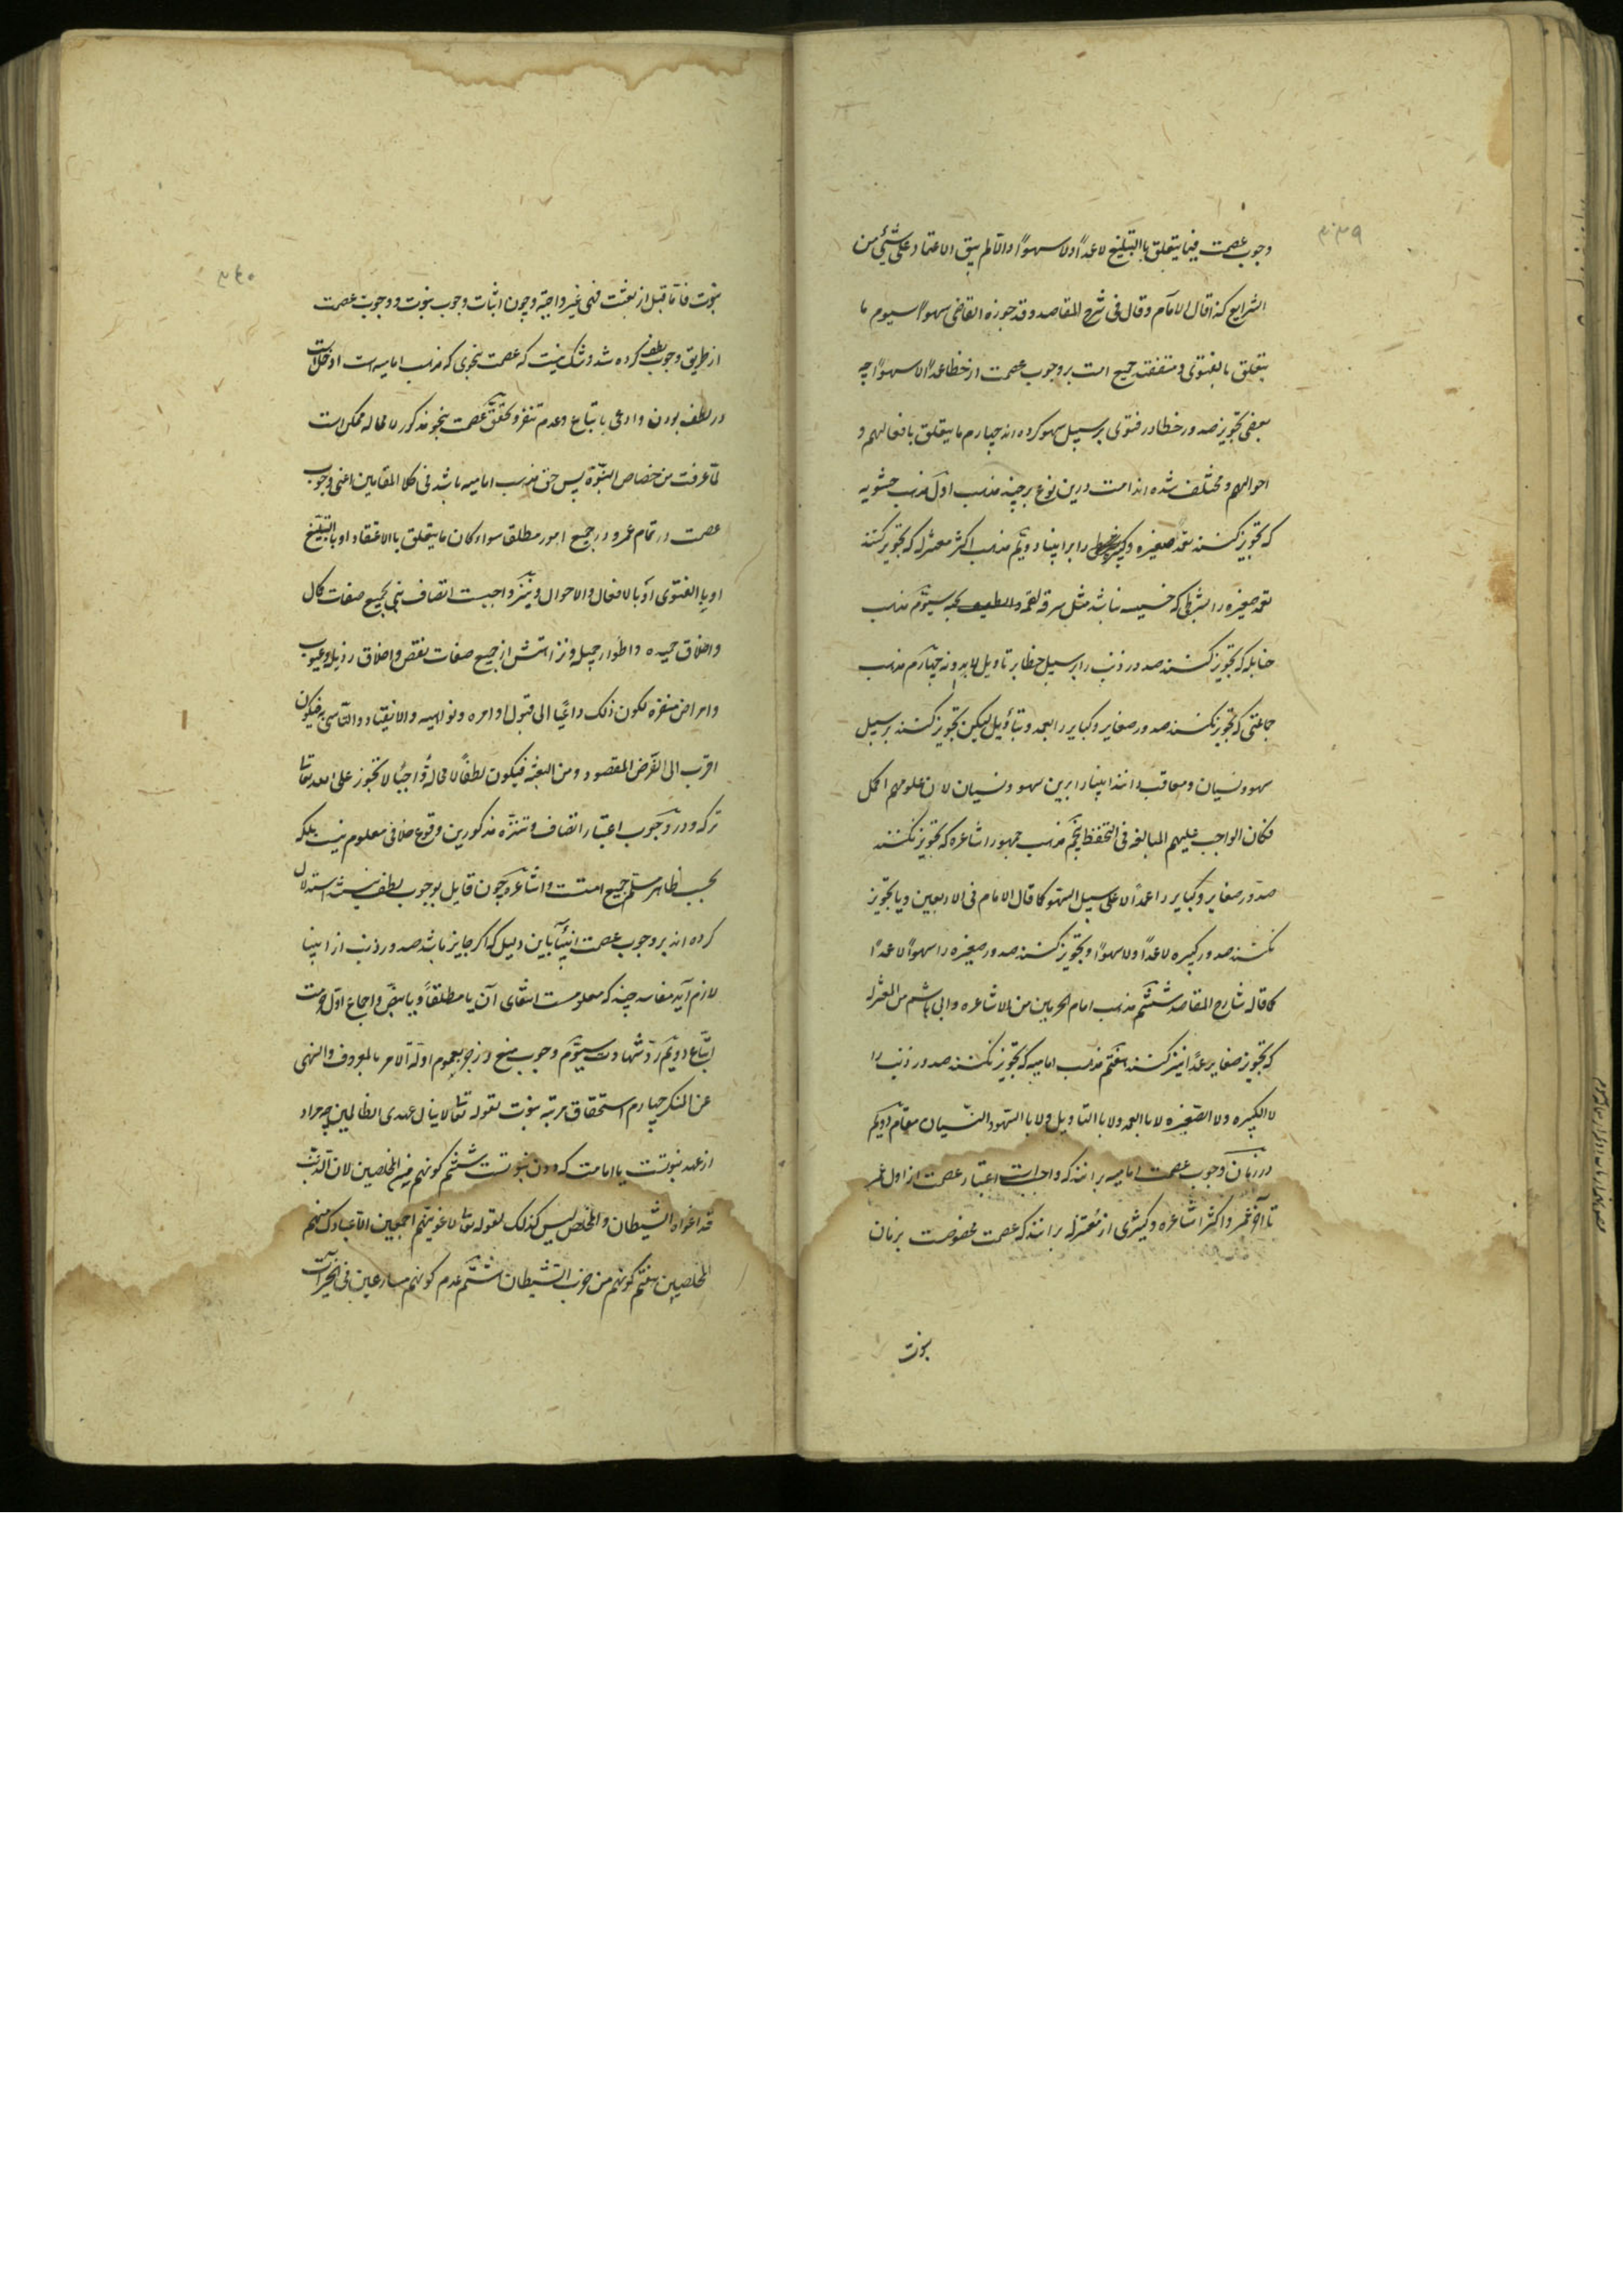 ٣٣٩
وجوب عصمت فیما یتعلق باالتبلیغ لا عمدًا ولا سهوًا والّا لم یبق الاعتماد علی شیٔ من
الشرایع کذا قال الامام و قال فی شرح المقاصد وقد جوزه القاضی سهوًا سیوم ما
یتعلق بالفتوی و متفقند جمیع امت بر وجوب عصمت از خطا عمدًا لا سهوًا چه
بعضی تجویز صدور خطا در فتوی بر سبیل سهو کرده اند چهارم ما یتعلق بافعالهم و
احوالهم و مختلف شده اند امت درین نوع بر چند مذهب اوّل مذهب حشویه
که تجویز کنند تعمد صغیره و کبیره را بر ایشان دویّم مذهب اکثر معتزله که تجویز کنند
تعمد صغیره را بشرطی که خسیسه نباشد مثل سرقه لقمه و تطفیف بحبه سیّوم مذهب
حنابله که تجویز کنند صدور ذنب را بر سبیل خطا بر تاویل لا بدونه چهارم مذهب
جماعتی که تجویز نکنند صدور صغایر و کبایر را بعمد و بتأویل لیکن تجویز کنند بر سبیل
سهو و نسیان و معاقب دانند ایشان را برین سهو و نسیان لان علومهم اکمل
فکان الواجب علیهم المبالغه فی التحفظ پنجم مذهب جمهور اشاعره که تجویز نکنند
صدور صغایر و کبایر را عمدًا لا علی سبیل السّهو کما قال الامام فی الاربعین و یا تجویز
نکنند صدور کبیره لا عمدًا ولا سهوًا و تجویز کنند صدور صغیره را سهوًا لا عمدًا
کما قاله شارح المقاصد ششم مذهب امام الحرمین من الاشاعره و ابی هاشم من المعتزله
که تجویز صغایر عمدًا نیز کنند هفتم مذهب امامیه که تجویز نکنند صدور ذنب را
لا الکبیره ولا الصّغیره لا باالعمد ولا باالتاویل ولا باالسّهو والنّسیان مقام دویّم
در زمان وجوب عصمت امامیه برانند که واجبست اعتبار عصمت از اول عمر
تا آخر عمر و اکثر اشاعره و کثیری از معتزله برانند که عصمت مخصوصست بزمان
نبوت
٣٤٠
نبوت فامّا قبل از بعثت فهی غیر واجبة و چون اثبات وجوب نبوت و وجوب عصمت
از طریق وجوب لطف کرده شد و شک نیست که عصمت بنحوی که مذهب امامیه است ادخلست
در لطف بودن و ادعی باتباع و عدم تنفر و تحقّق عصمت بنحو مذکور لا محاله ممکن است
لما عرفت من خصاص النبّوة پس حق مذهب امامیه باشد فی کلا المقامین اعنی وجوب
عصمت در تمام عمر و در جمیع امور مطلقا سواء کان ما یتعلق باالاعتقاد او باالتبلیغ
او باالفتوی او باالافعال والاحوال و نیز واجبست اتصاف نبی بجمیع صفات کمال
و اخلاق حمیده و اطوار جمیله و نزاهتش از جمیع صفات نقص و اخلاق رذیله و عیوب
و امراض منفره لکون ذلک داعیًا الی قبول اوامره و نواهیه والانقیاد والتاسی به فیکون
اقرب الی الغرض المقصود من البعثه فیکون لطفًا لا محالة واجبًا لا یجوز علی الله تعالی
ترکه و در وجوب اعتبار اتصاف و تنزّه مذکورین وقوع خلافی معلوم نیست بلکه
بحسب ظاهر مسلّم جمیع امتست و اشاعره چون قایل بوجوب لطف نیستند استدلال
کرده اند بر وجوب عصمت انبیا باین دلیل که اکر جایز باشد صدور ذنب از انبیا
لازم آید مفاسد چند که معلومست انتفای آن یا مطلقاً و یا بنصّ و اجماع اوّل حرمت
اتّباع دویّم ردّ شهادت سیوّم وجوب منع و زجر بعموم ادلّه الامر بالمعروف والنهی
عن المنکر چهارم استحقاق مرتبه نبوت لقوله تعالی لا ینال عهدی الظالمین چه مراد
از عهد نبوتست یا امامت که دون نبوتست ششم کونهم غیر المخلصین لان المذنب
قد اغواه الشّیطان والمخلص لیس کذلک لقوله تعالی لاغوینّهم اجمعین الّا عبادک منهم
المخلصین هفتم کونهم من حزب الشّیطان هشتم عدم کونهم مسارعین فی الخیرات